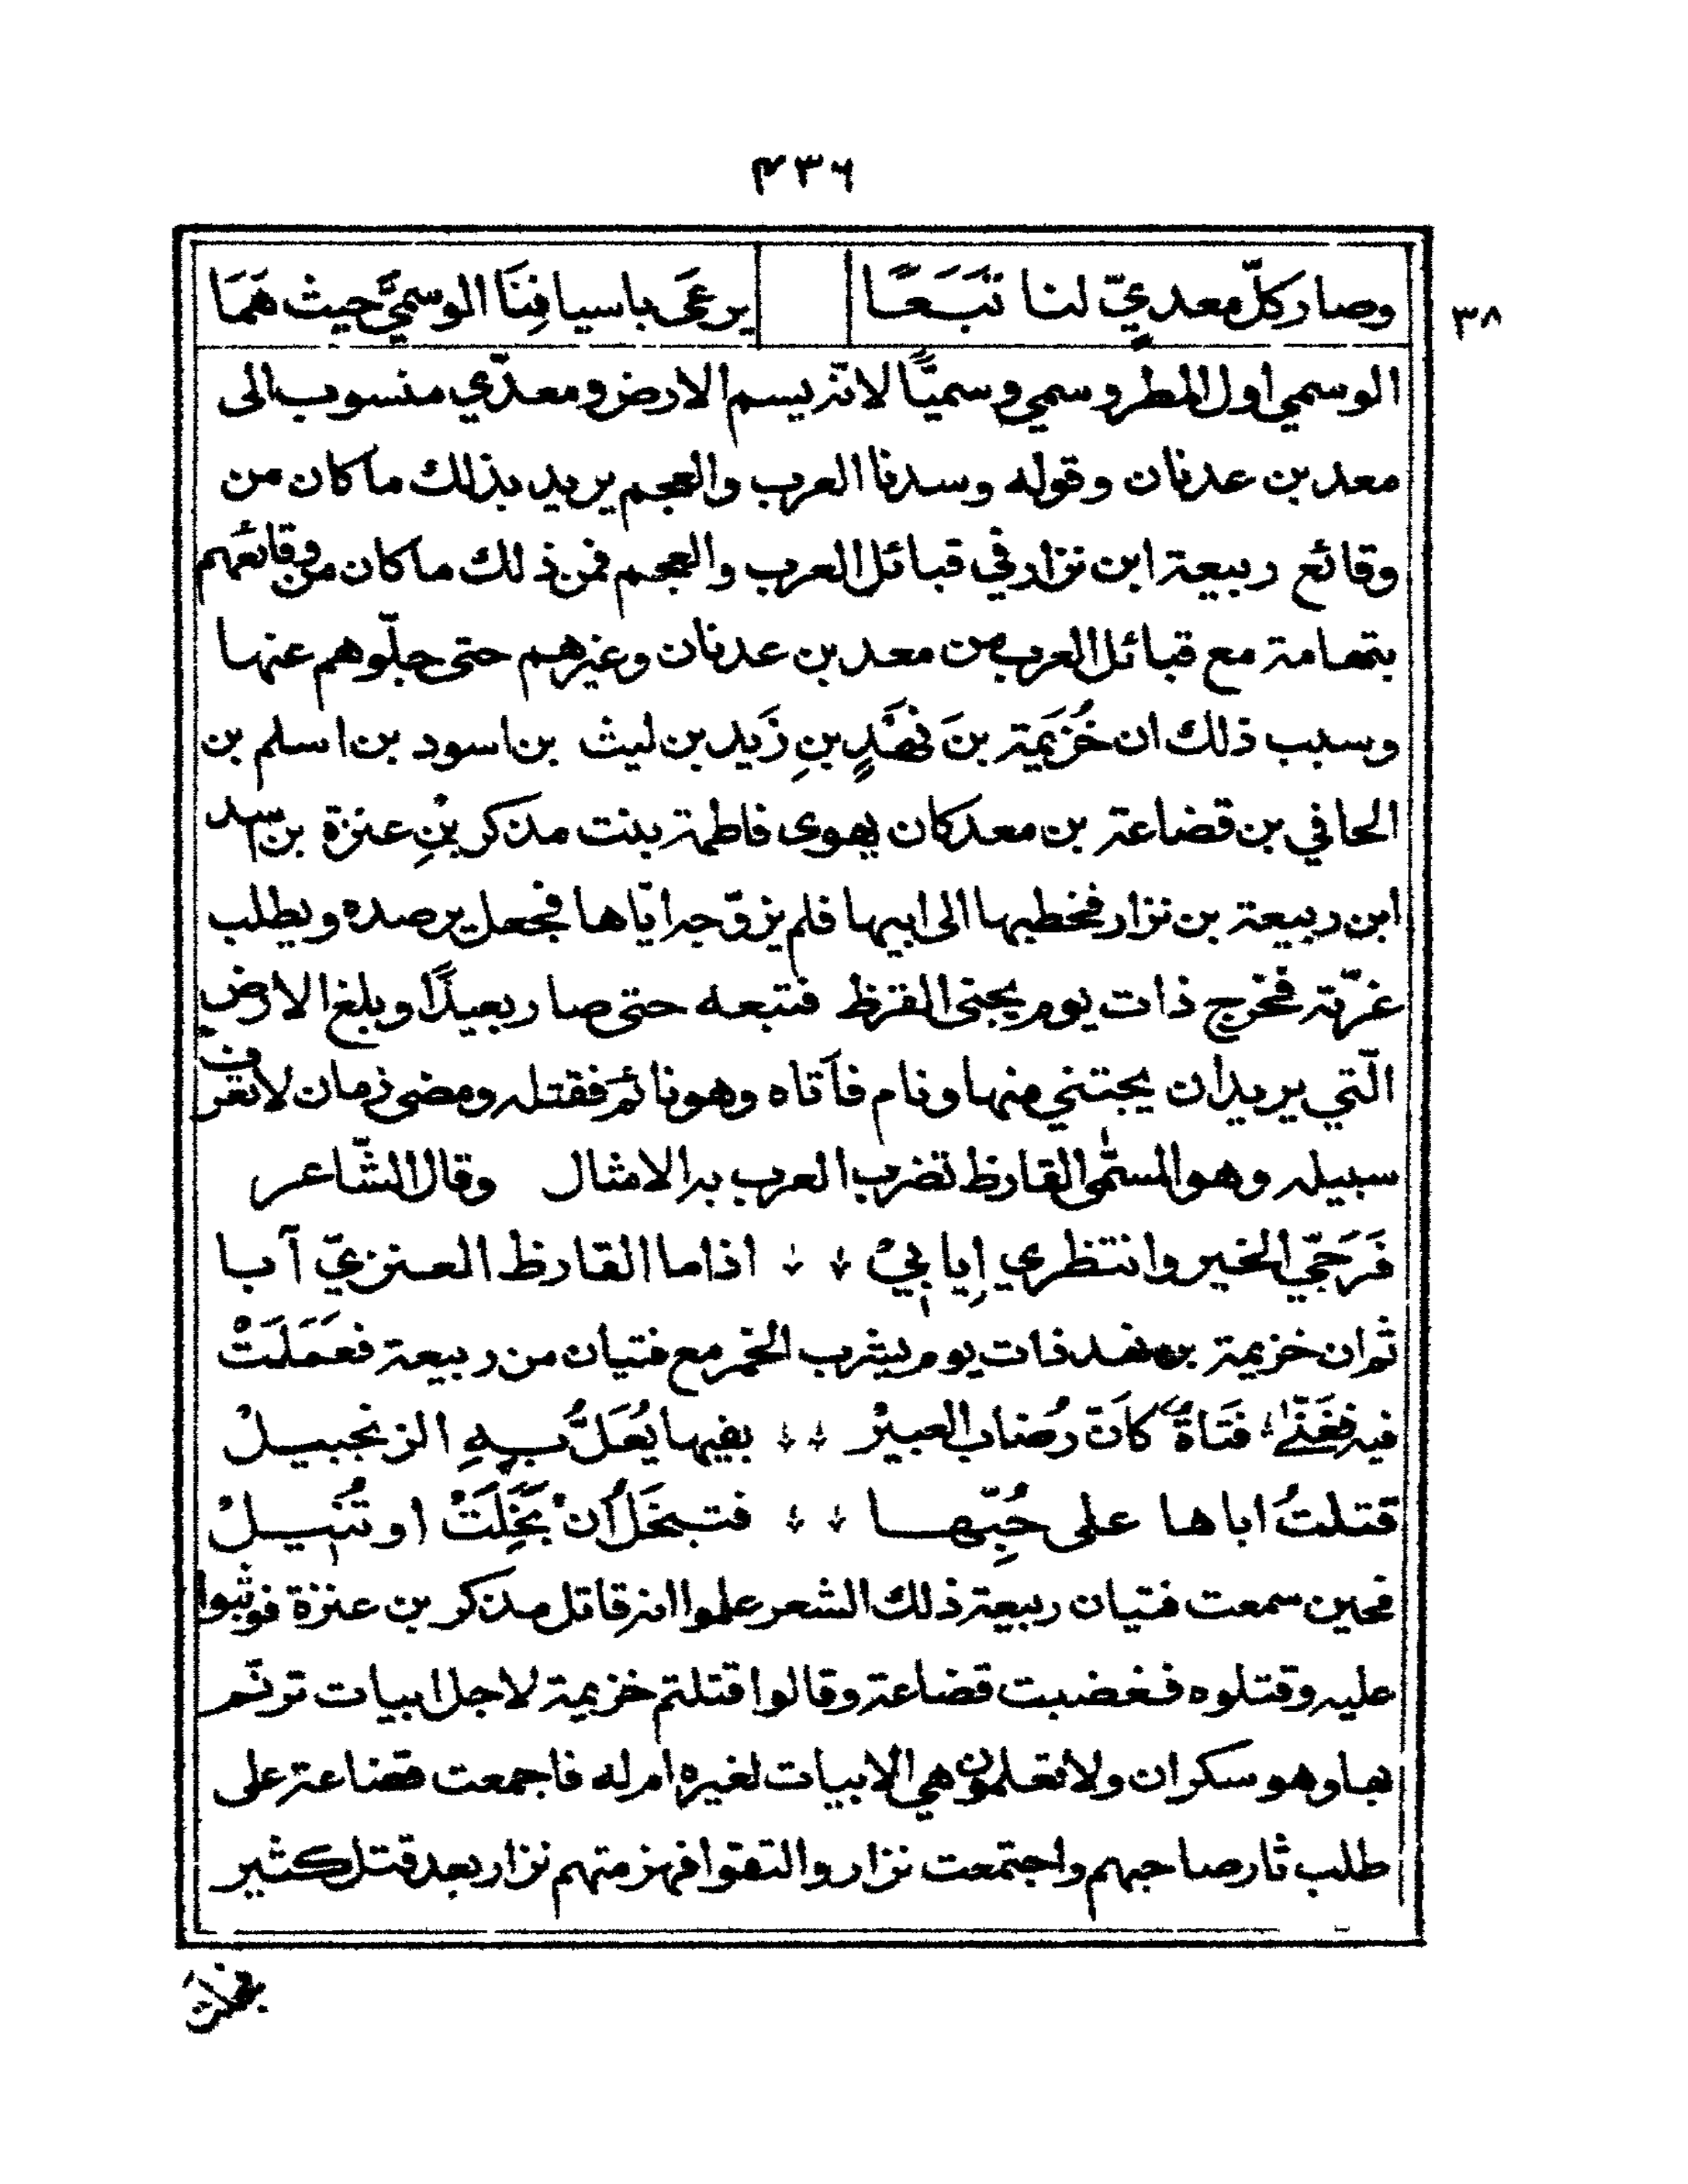 ٤٣٦
٣٨
وصار كلّ معديٍّ لنا تَبَعًا يرعَى باسيافِنَا الوسميَّ حيث هَمَا
الوسمي اول المطر وسمي وسميًّا لانّه يسم الارض ومعدّي منسوب الى
معد بن عدنان وقوله وسدنا العرب والعجم يريد بذلك ما كان من
وقائع ربيعة ابن نزار في قبائل العرب والعجم فمن ذلك ما كان من وقائعهم
بتهامة مع قبائل العرب من معد بن عدنان وغيرهم حتى جلّوهم عنها
وسبب ذلك ان خُزَيمة بنَ نَهْدٍ بنِ زَيد بن ليث بن اسود بن اسلم بن
الحافي بن قضاعة بن معد كان يهوى فاطمة بنت مذكر بْنِ عنزة بن اسد
ابن ربيعة بن نزار فخطبها الى ابيها فلم يزوّجه ايّاها فجعل يرصده ويطلب
غرّته فخرج ذات يوم يجنى القرظ فتبعه حتى صار بعيدًا وبلغ الارض
الّتي يريد ان يجتني منها ونام فأتاه وهو نائم فقتله ومضى زمان لا تعرف
سبيله وهو المسمّى القارظ تضرب العرب به الامثال وقال الشّاعر
فَرَجّي الخير وانتظري إيابيْ اذا ما القارظ العنزيّ آبا
ثم ان خزيمة بن نهد ذات يوم يشرب الخمر مع فتيان من ربيعة فعَمَلَتْ
فيه فغَنّى فَتَاةٌ كانّ رُضاب العبيرْ بفيها يُعَلُّ بِهِ الزنجبيلْ
قتلتُ اباها على حُبِّها فتبخَل انْ بَخِلَتْ او تُنيلْ
فحين سمعت فتيان ربيعة ذلك الشعر علموا انه قاتل مذكر بن عنزة فوثبوا
عليه وقتلوه فغضبت قضاعة وقالوا قتلتم خزيمة لاجل ابيات ترنّم
بها وهو سكران ولا تعلمون هي الابيات لغيره ام له فاجمعت قضاعة على
طلب ثار صاحبهم واجتمعت نزار والتقوا فهزمتهم نزار بعد قتل كثير